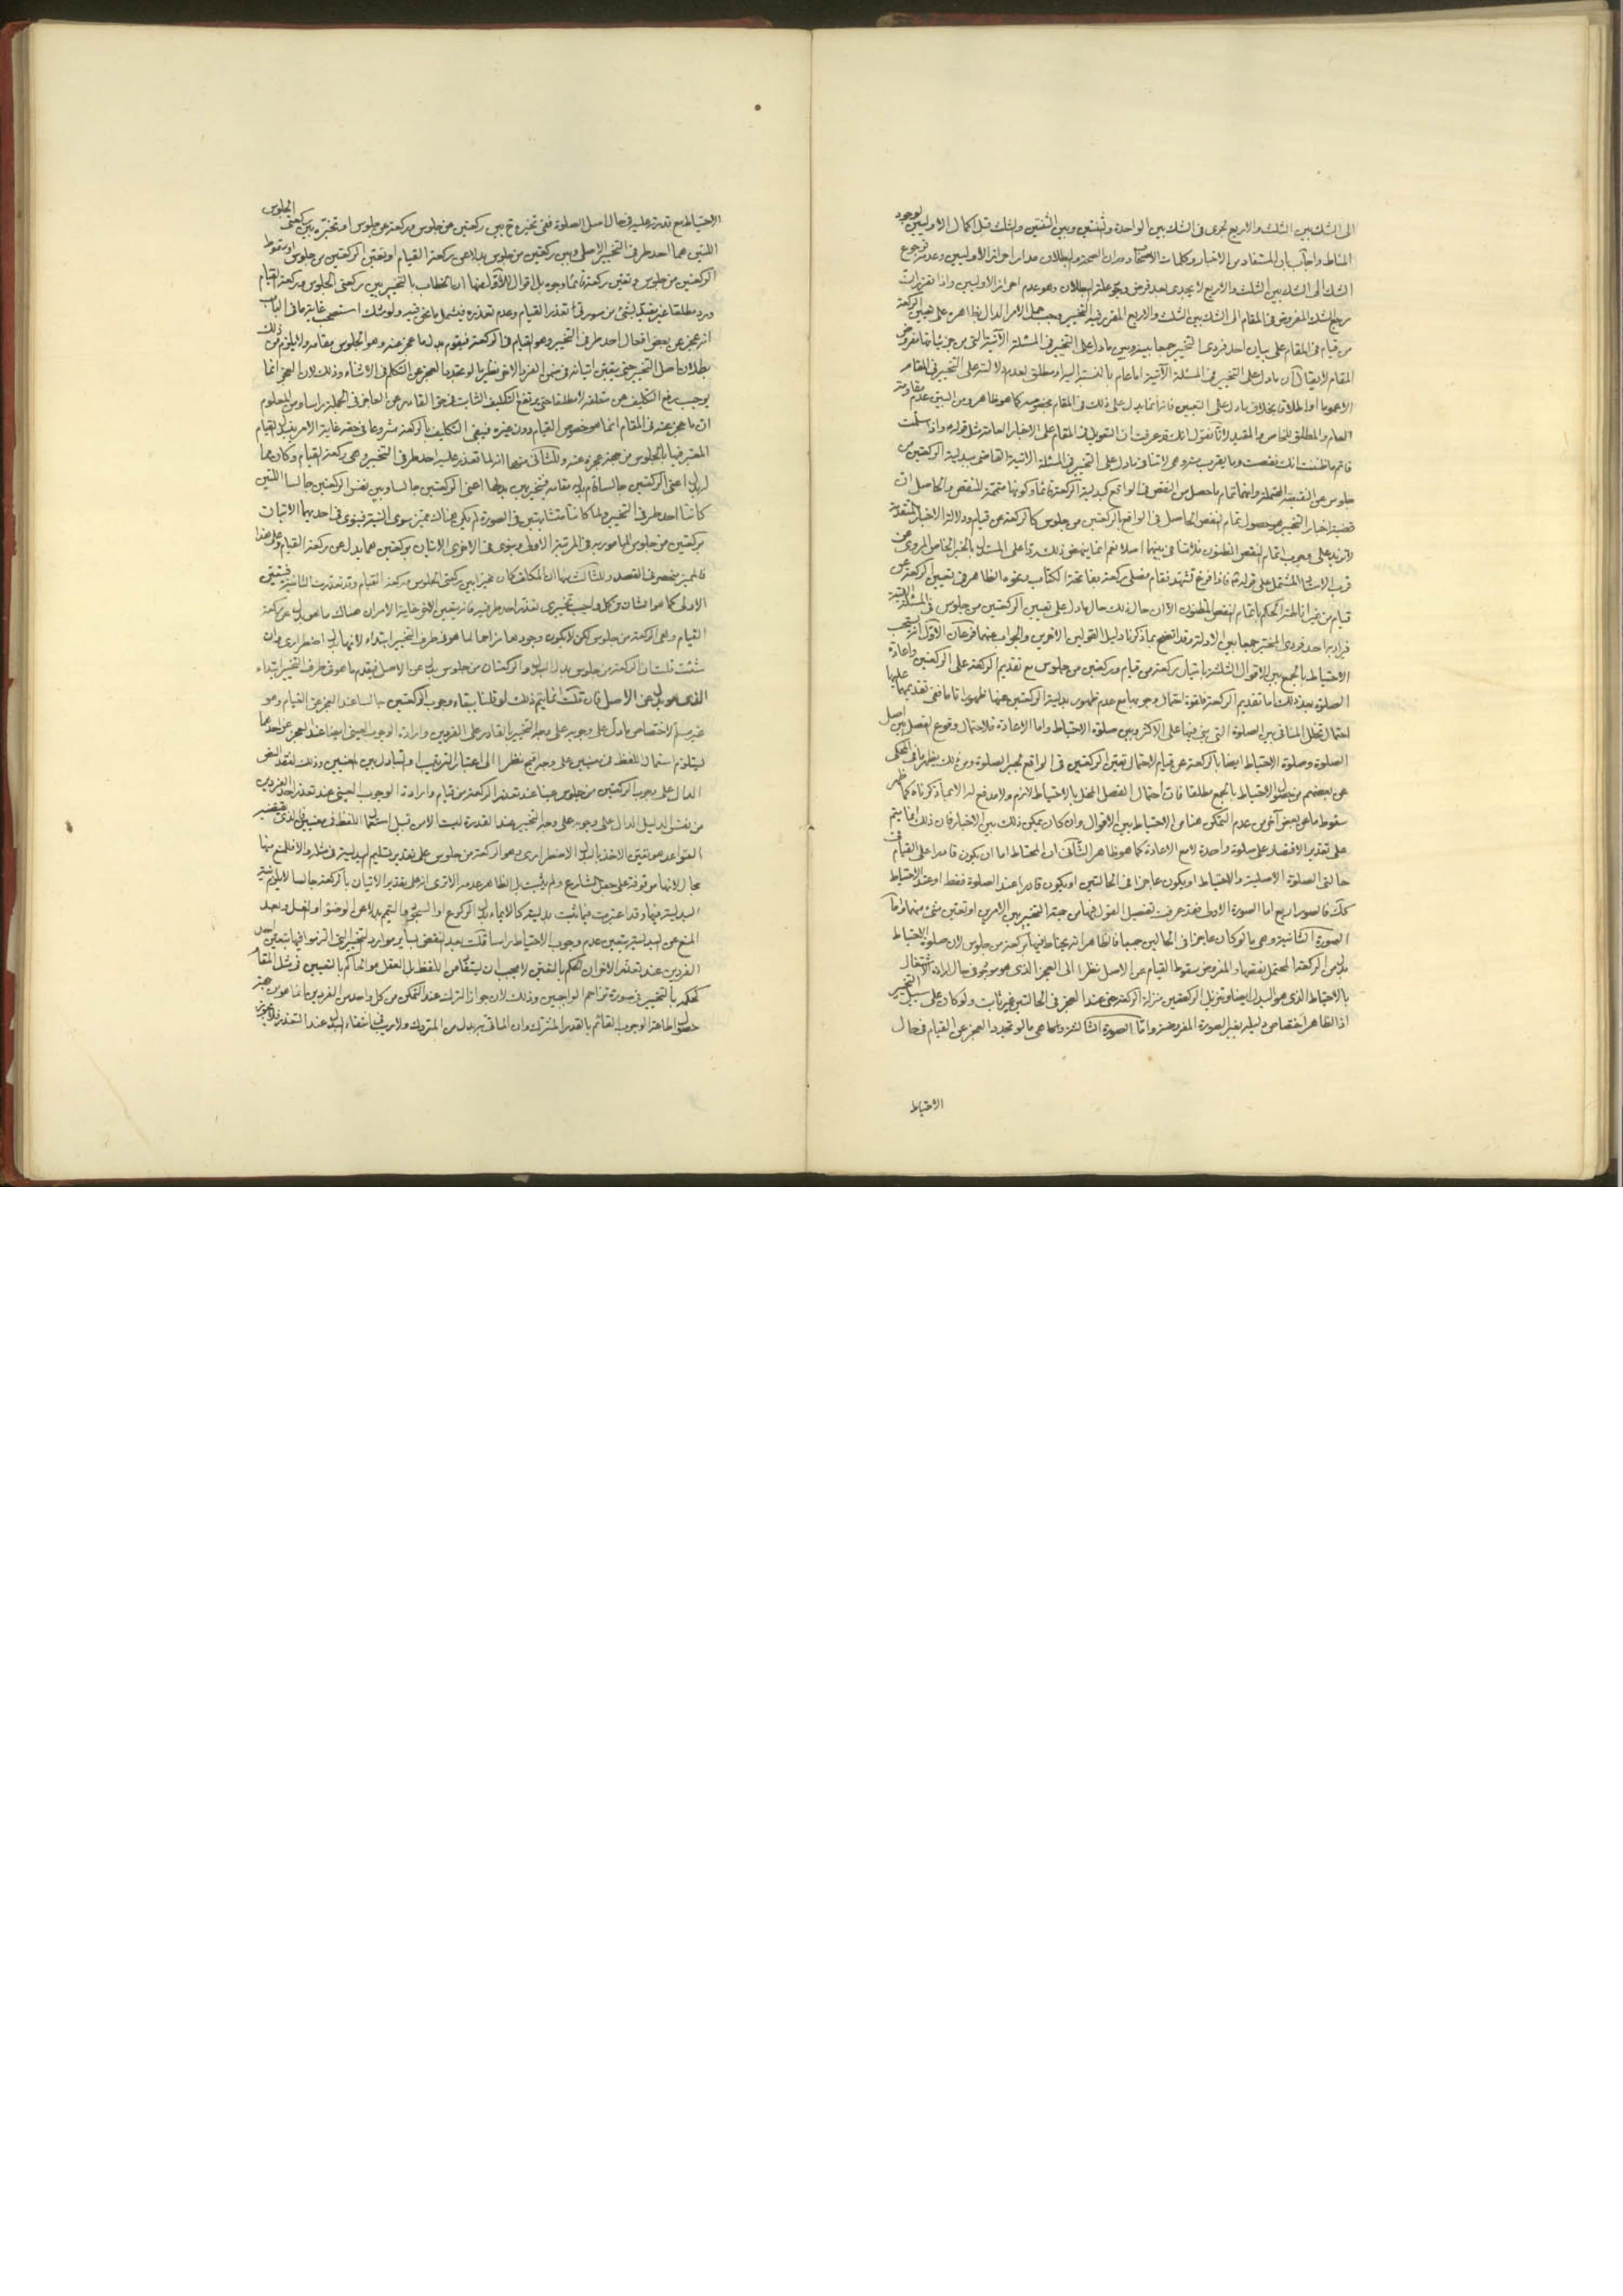 الى الشك بين الثلث والاربع تجرى فى الشك بين الواحدة والثنتين وبين الثنتين والثلث قبل اكمال الاوليين لوجود
المناط واجاب بان المستفاد من الاخبار وكلمات الاصحاب دوران الصحة والبطلان مدار احراز الاوليين وعدمه فرجوع
الشك الى الشك بين الثلث والاربع لا يجدى بعد فرض علة البطلان وهو عدم احراز الاوليين واذا تقرر ان
مرجع الشك المفروض فى المقام الى الشك بين الثلث والاربع المقرر فيه التخيير وجب حمل الامر الدال بظاهره على تعيين الركعة
من قيام فى المقام على بيان احد فردى التخيير جمعا بينه وبين ما دل على التخيير فى المسئلة الآتية التى من جزئياتها مفروض
المقام لا يقال ان ما دل على التخيير فى المسئلة الآتية اما عام بالنسبة اليه او مطلق لعدم دلالته على التخيير فى المقام
الا عموما او اطلاقا بخلاف ما دل على التعيين فانه انما يدل على ذلك فى المقام بخصوصه كما هو ظاهر ومن البين عدم مقاومة
العام والمطلق للخاص والمقيد لانا نقول انك قد عرفت ان التعويل فى المقام على الاخبار العامة مثل قوله واذا سلمت
فاتم ما ظننت انك نقصت وما يقرب منه وهى لا تنافى ما دل على التخيير فى المسئلة الاتية القاضى ببدلية الركعتين من
جلوس عن النقيصة المحتملة وانهما تمام ما حصل من النقص فى الواقع كبدلية الركعة قائما وكونها متممة للنقص والحاصل ان
قضية اخبار التخيير هو حصول تمام النقص الحاصل فى الواقع بالركعتين من جلوس كالركعة من قيام ودلالة الاخبار المتقدمة
لا تزيد على وجوب اتمام النقص المظنون فلا تنافى بينهما اصلا نعم انما ينهض ذلك ردا على المستدل بالخبر الخاص المروى عن
قرب الاسناد المشتمل على قوله فاذا فرغ تشهد فقام فصلى ركعة بفاتحة الكتاب ونحوه الظاهر فى تعيين الركعة من
قيام من غير اناطة الحكم باتمام النقص المظنون الا ان حال ذلك حال ما دل على تعيين الركعتين من جلوس فى المسئلة الاتية
فيراد به احد فردى المخير جمعا بين الادلة وقد اتضح بما ذكرنا دليل القولين الاخرين والجواب عنهما فرعان الاول انه يستحب
الاحتياط بالجمع بين الاقوال الثلثة باتيان ركعة من قيام وركعتين من جلوس مع تقديم الركعة على الركعتين واعادة
الصلوة بعد ذلك اما تقديم الركعة فلقوة احتمال وجوبها مع عدم ظهور بدلية الركعتين عنها ظهورا تاما ففى تقديمهما عليها
احتمال تخلل المنافى بين الصلوة التى يبنى فيها على الاكثر وبين صلوة الاحتياط واما الاعادة فلاحتمال وقوع الفصل بين اصل
الصلوة وصلوة الاحتياط ايضا بالركعة عن قيام لاحتمال تعين الركعتين فى الواقع لجبر الصلوة ومن ذلك يظهر ما فى المحكى
عن بعضهم من حصول الاحتياط بالجمع مطلقا فان احتمال الفصل المخل بالاحتياط لازم ولا مدفع له الا بما ذكرناه كما ظهر
سقوط ما عن بعض آخر من عدم التمكن هنا من الاحتياط بين الاقوال وان كان يمكن ذلك بين الاخبار فان ذلك انما يتم
على تقدير الاقتصار على صلوة واحدة لا مع الاعادة كما هو ظاهر الثانى ان المحتاط اما ان يكون قادرا على القيام فى
حالتى الصلوة الاصلية والاحتياط او يكون عاجزا فى الحالتين او يكون قادرا عند الصلوة فقط او عند الاحتياط
كك فالصور اربع اما الصورة الاولى فقد عرفت تفصيل القول فيها من جهة التخيير بين الامرين او تعين شئ منهما واما
الصورة الثانية وهى ما لو كان عاجزا فى الحالين جميعا فالظاهر انه يحتاط فيها بركعة من جلوس لان صلوة الاحتياط
بدل من الركعة المحتمل نقصها والمفروض سقوط القيام عن الاصل نظرا الى العجز الذى هو موجود فى حال ارادة اشتغاله
بالاحتياط الذى هو البدل ايضا وتنزيل الركعتين منزلة الركعة حتى عند العجز فى الحالتين غير ثابت ولو كان على سبيل التخيير
اذا الظاهر اختصاص دليله بغير الصورة المفروضة واما الصورة الثالثة وهى ما لو تجدد العجز عن القيام فى حال
الاحتياط
الاحتياط مع قدرته عليه فى حال اصل الصلوة ففى تخيره ح بين ركعتين من جلوس وركعة من جلوس او تخيره بين ركعتى الجلوس
اللتين هما احد طرفى التخيير الاصلى وبين ركعتين من جلوس بدلا عن ركعة القيام او تعين الركعتين من جلوس او سقوط
الركعتين من جلوس وتعين ركعة قائما وجوه بل اقوال للاول منها ان الخطاب بالتخيير بين ركعتى الجلوس وركعة القيام
ورد مطلقا غير مقيد بشئ من صورتى تعذر القيام وعدم تعذره فيشمل ما نحن فيه ولو شك استصحب غاية ما فى الباب
انه عجز عن بعض افعال احد طرفى التخيير وهو القيام فى الركعة فيقوم بدل ما عجز عنه وهو الجلوس مقامه ولا يلزم من ذلك
بطلان اصل التخيير حتى يتعين اتيانه فى ضمن الفرد الاخر نظير ما لو تجدد العجز عن التكلم فى الاثناء وذلك لان العجز انما
يوجب رفع التكليف عن متعلقه لا مطلقا حتى يرتفع التكليف الثابت فى حق القادر عن العاجز فى الجملة راسا ومن المعلوم
ان ما عجز عنه فى المقام انما هو خصوص القيام دون غيره فيبقى التكليف بالركعة مشروعا فى حقه غاية الامر تبدل القيام
المعتبر فيها بالجلوس من جهة عجزه عنه وللثانى منهما انه لما تعذر عليه احد طرفى التخيير وهى ركعة القيام وكان لها
بدل اعنى الركعتين جالسا قام بدله مقامه فيتخير بين بدلها اعنى الركعتين جالسا وبين نفس الركعتين جالسا اللتين
كانتا احد طرفى التخيير ولما كانتا متشابهتين فى الصورة لم يكن هناك مميز سوى النية فينوى فى احديهما الاتيان
بركعتين من جلوس المامور به فى المرتبة الاولى وينوى فى الاخرى الاتيان بركعتين هما بدل عن ركعة القيام وعلى هذا
فالمميز ينحصر فى القصد وللثالث منهما ان المكلف كان مخيرا بين ركعتى الجلوس وركعة القيام وقد تعذرت الثانية فيتعين
الاولى كما هو الشان فى كل واجب تخييرى تعذر احد طرفيه فانه يتعين الاخر غاية الامر ان هناك ما هو بدل عن ركعة
القيام وهى الركعة من جلوس لكن لا يكون وجودها مزاحما لما هو فى طرف التخيير ابتداء لانها بدل اضطرارى وان
شئت قلت ان الركعة من جلوس بدل البدل والركعتان من جلوس بدل عن الاصل فيقدم ما هو فى طرف التخيير ابتداء
الذى هو بدل عن الاصل فان قلت انما يتم ذلك لو قلنا ببقاء وجوب الركعتين جالسا عند العجز عن القيام وهو
غير مسلم لاختصاص ما دل على وجوبه على وجه التخيير بالقادر على الفردين وارادة الوجوب العينى ايضا عند العجز عن احدهما
يستلزم استعمال اللفظ فى معنيين على وجه قبيح نظرا الى اعتبار الترتيب او التبادل بين المعنيين وذلك لفقد النص
الدال على وجوب الركعتين من جلوس عينا عند تعذر الركعة من قيام وارادة الوجوب العينى عند تعذر احد الفردين
من نفس الدليل الدال على وجوبه على وجه التخيير عند القدرة ليست الا من قبيل استعمال اللفظ فى معنيين فالذى تقتضيه
القواعد هو تعين الاخذ بالبدل الاضطرارى وهو الركعة من جلوس على تقدير تسليم البدلية فى مثله والا فللمنع منها
مجال لانها موقوفة على جعل الشارع ولم يثبت بل الظاهر عدمه الا ترى انه على تقدير الاتيان بالركعة جالسا لا يلزم نية
البدلية فيها وقد اعتبرت فيما ثبت بدليته كالايماء بدل الركوع او السجود والتيمم بدلا عن الوضوء او الغسل وبعد
المنع عن البدلية يتعين عدم وجوب الاحتياط راسا قلت بعد النقض بساير موارد التخيير التى التزموا فيها بتعين احد
الفردين عند تعذر الاخر ان الحكم بالتعين لا يجب ان يستفاد من اللفظ بل العقل هو الحاكم بالتعيين فى مثل المقام
كحكمه بالتخيير فى صورة تزاحم الواجبين وذلك لان جواز الترك عند التمكن من كل واحد من الفردين انما هو من جهة
حصول اطاعة الوجوب القائم بالقدر المشترك وان الماتى به بدل من المتروك ولا ريب فى انتفاء البدل عند التعذر فلا يجوز